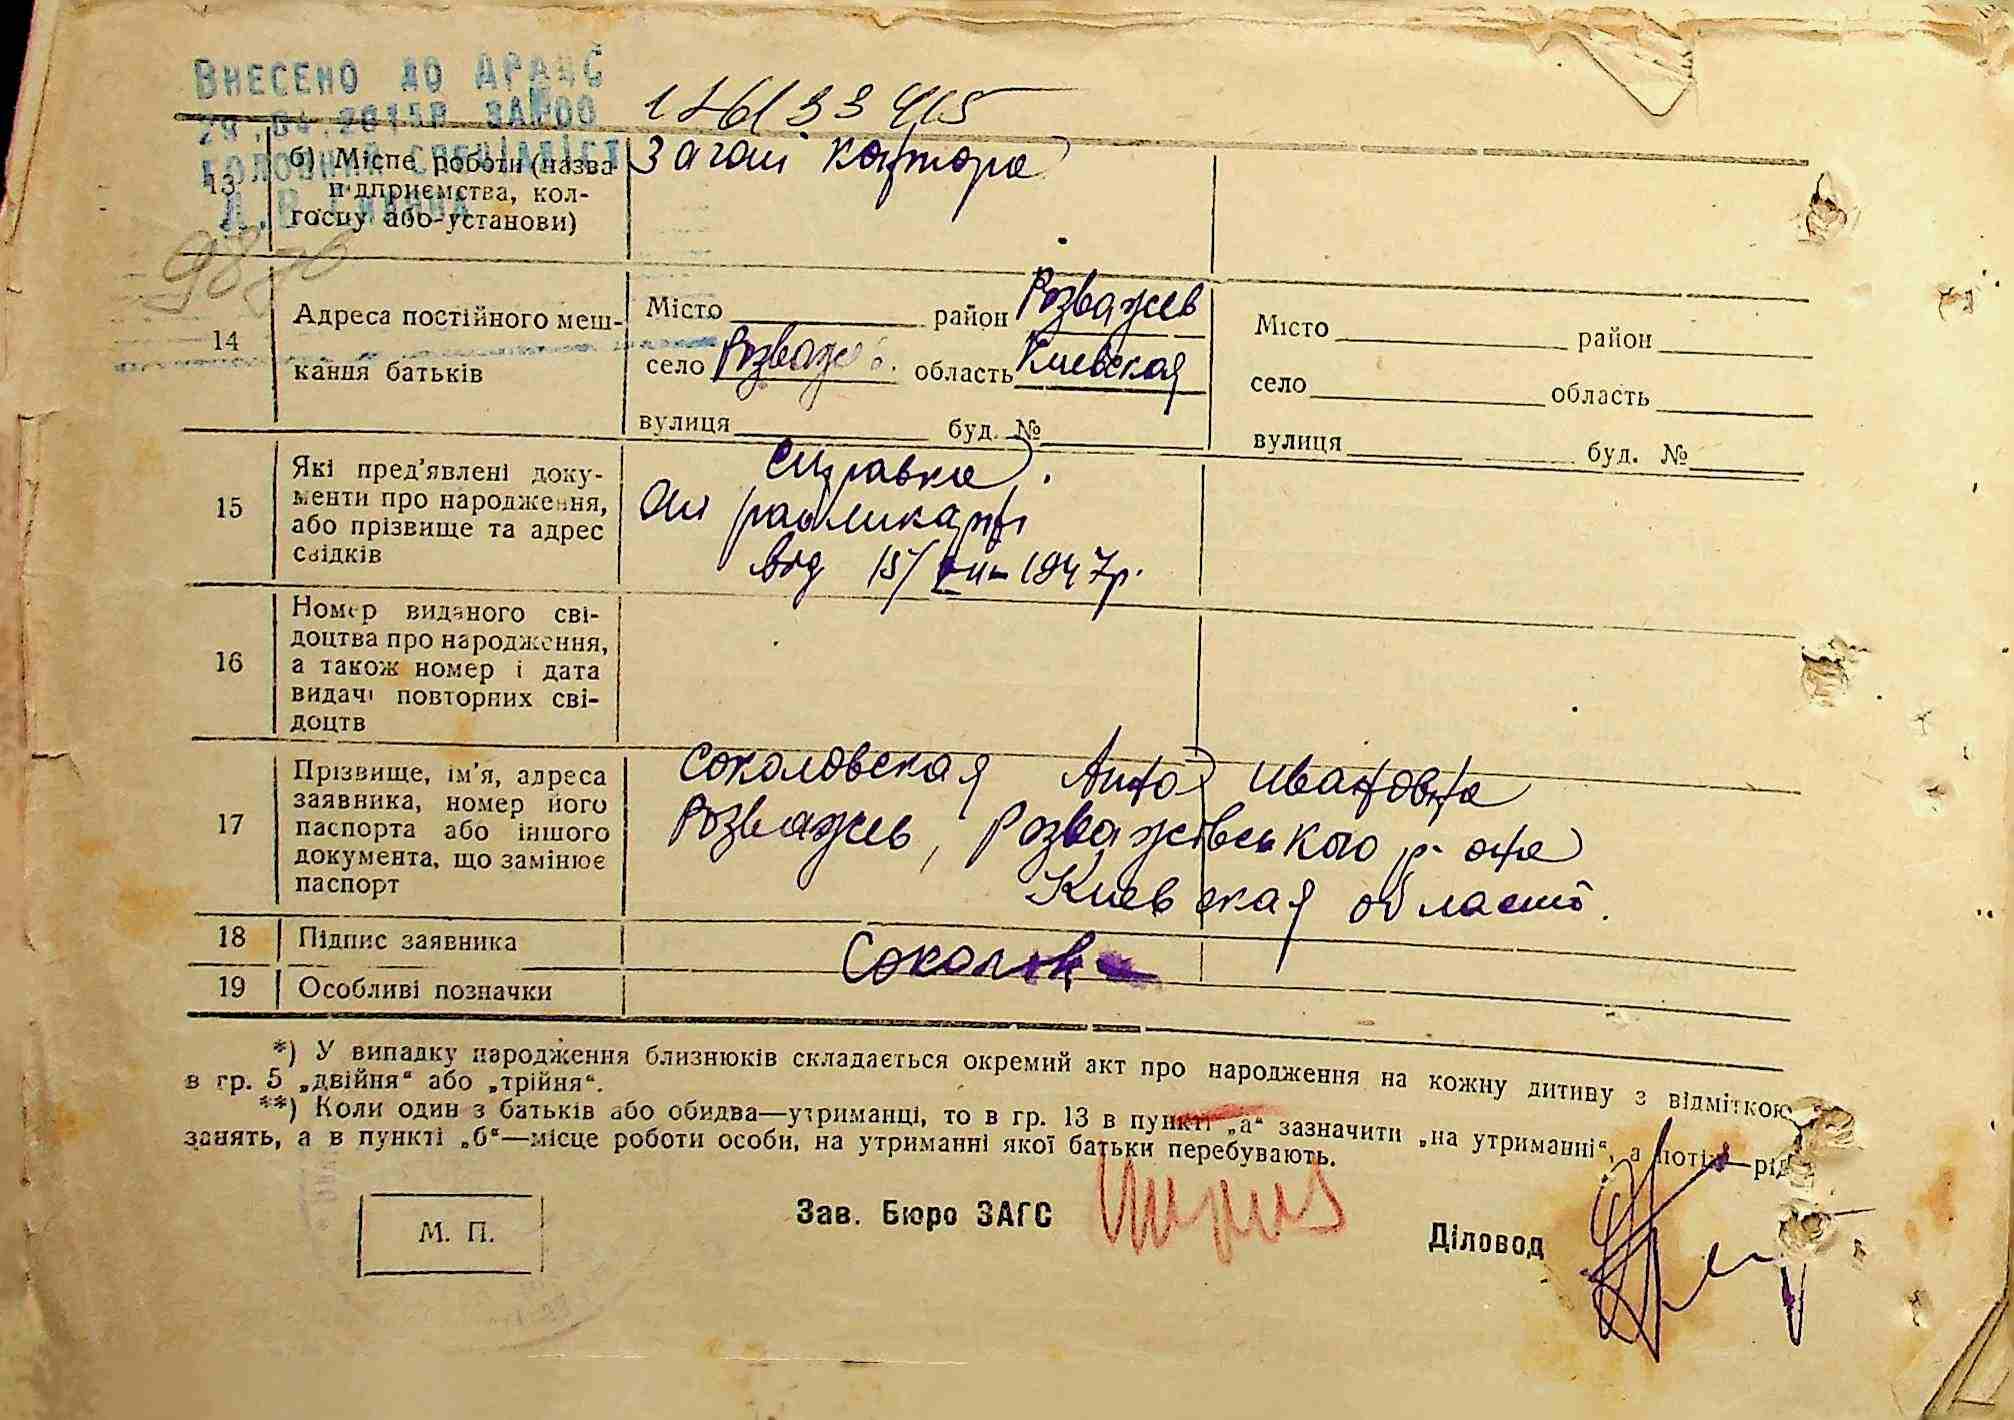 ВНЕСЕНО ДО ДРАЦС
ГОЛОВНИЙ СПЕЦІАЛІСТ
13
б) Місце роботи (назва
підприємства, кол-
госпу або установи)
контора
14
Адреса постійного меш-
кання батьків
Місто район Розважев
село Розважев. область Киевская
вулиця буд. №
Місто район
село область
вулиця буд. №
15
Які пред'явлені доку-
менти про народження,
або прізвище та адрес
свідків
справка
від 15/ 1947р.
16
Номер виданого сві-
доцтва про народження,
а також номер і дата
видачі повторних сві-
доцтв
17
Прізвище, ім'я, адреса
заявника, номер його
паспорта або іншого
документа, що замінює
паспорт
Соколовская Анна Ивановна
Розважев, Розважівського р-она
Киевская область.
18
Підпис заявника
19
Особливі позначки
*) У випадку народження близнюків складається окремий акт про народження на кожну дитину з відміткою
в гр. 5 „двійня“ або „трійня“.
**) Коли один з батьків або обидва—утриманці, то в гр. 13 в пункті „а“ зазначити „на утриманні“, а потім—рід
занять, а в пункті „б“—місце роботи особи, на утриманні якої батьки перебувають.
М. П.
Зав. Бюро ЗАГС
Діловод